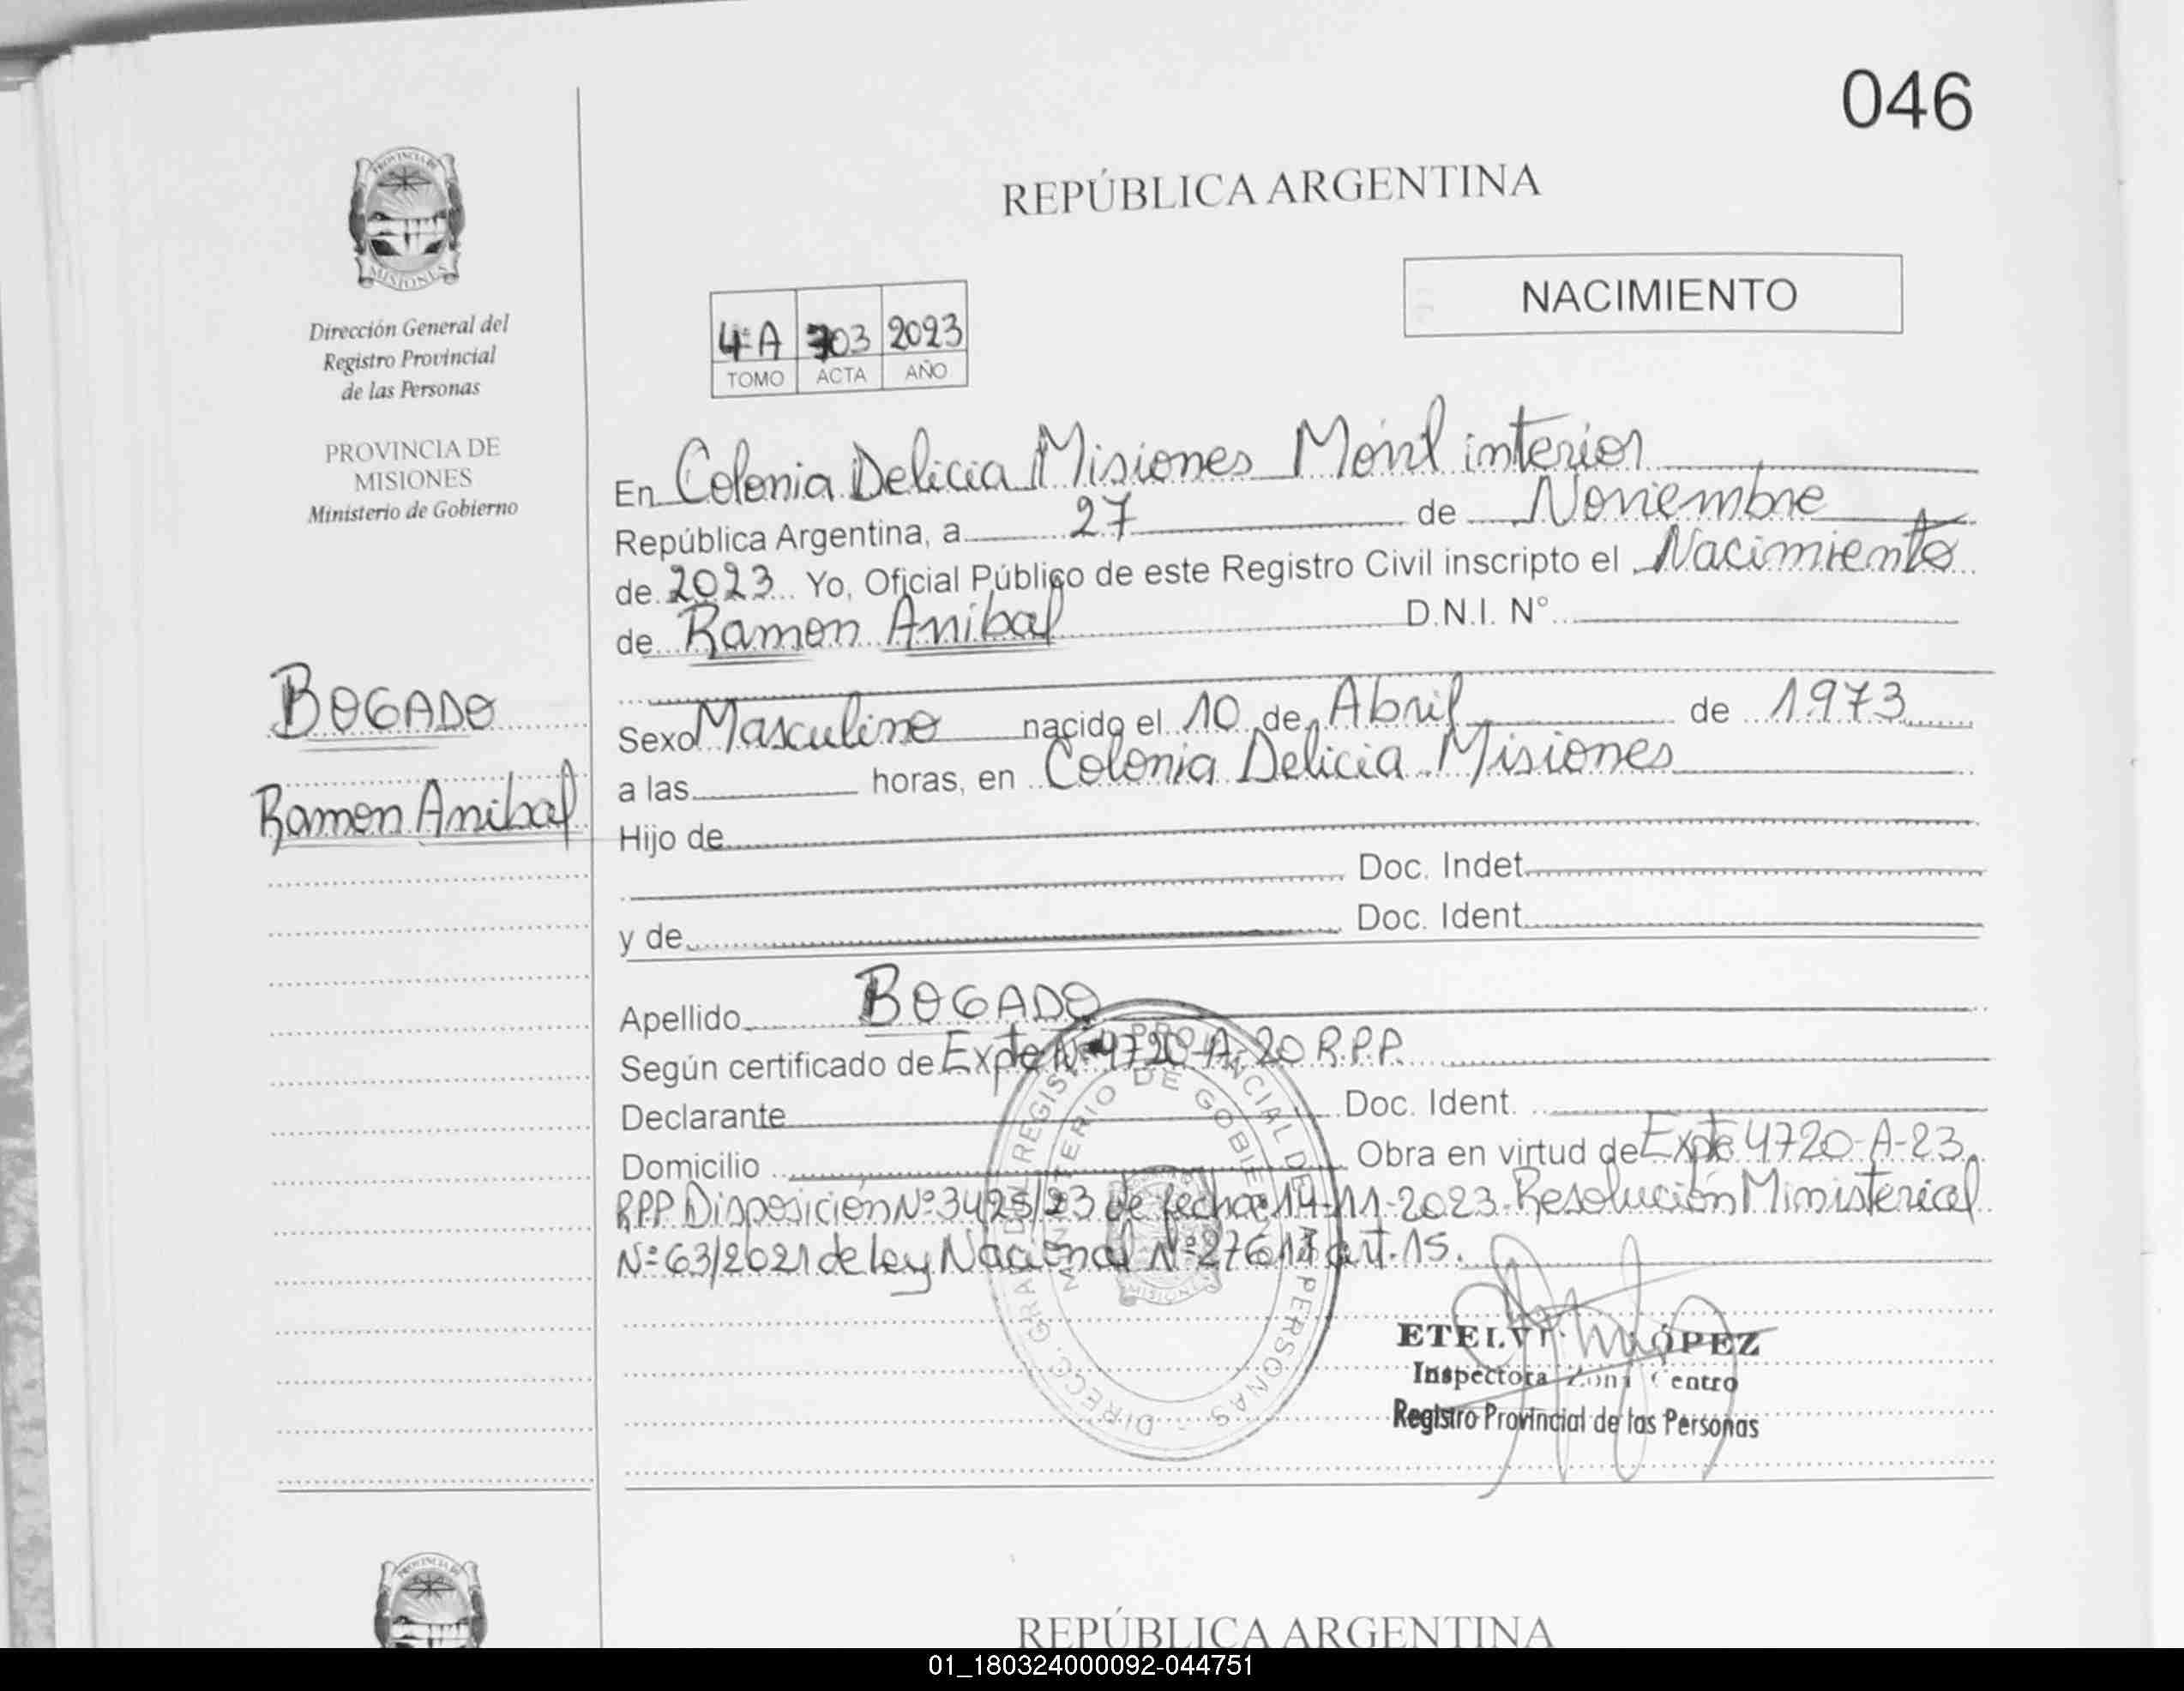 046
REPÚBLICA ARGENTINA
NACIMIENTO
PROVINCIA DE
MISIONES
Dirección General del
Registro Provincial
de las Personas
PROVINCIA DE
MISIONES
Ministerio de Gobierno
4ºA 703 2023
TOMO ACTA AÑO
En Colonia Delicia Misiones Móvil interior
República Argentina, a 27 de Noviembre
de 2023 Yo, Oficial Público de este Registro Civil inscripto el Nacimiento
de Ramon Anibal D.N.I. N°
BOGADO
Ramon Anibal
Sexo Masculino nacido el 10 de Abril de 1973
a las horas, en Colonia Delicia Misiones
Hijo de
Doc. Indet.
y de Doc. Ident.
Apellido BOGADO
Según certificado de Expte Nº 4720-A-20 R.P.P.
Declarante Doc. Ident.
Domicilio Obra en virtud de Expte 4720-A-23
RPP Disposición Nº 3425/23 de fecha 14-11-2023 Resolución Ministerial
Nº 63/2021 de Ley Nacional Nº 27611 art. 15.
DIRECC. GRAL. DEL REGISTRO PROVINCIAL DE LAS PERSONAS
MINISTERIO DE GOBIERNO
MISIONES
LÓPEZ
Inspectora Zona Centro
Registro Provincial de las Personas
PROVINCIA DE
REPÚBLICA ARGENTINA
01_180324000092-044751